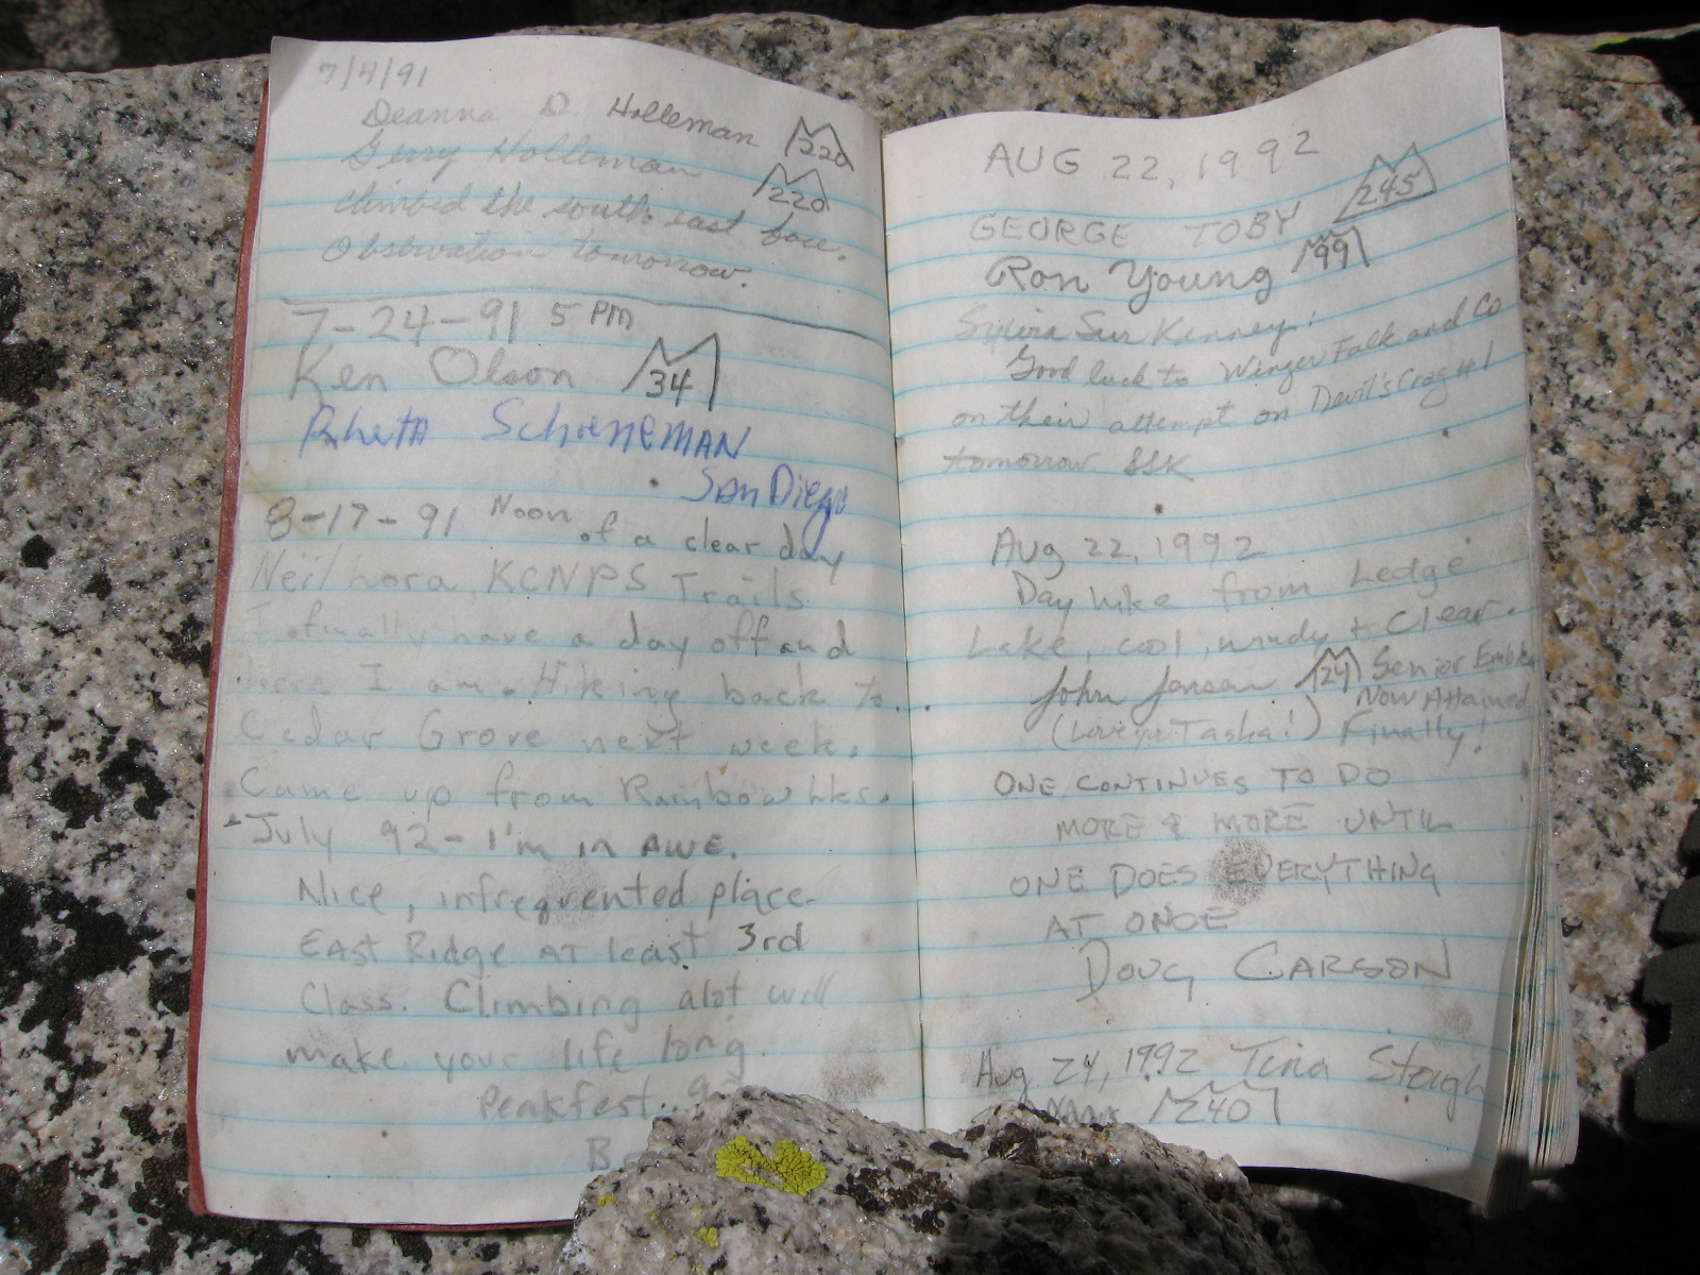 7/4/91
Deanna D. Holleman 220
Gerry Holleman 220
climbed the south east face.
Observation tomorrow.
7-24-91 5 PM
Ken Olson 34
Rheta Schoeneman
San Diego
8-17-91 Noon of a clear day
Neil KCNPS Trails
I finally have a day off and
here I am. Hiking back to
Cedar Grove next week.
Came up from Rainbow Lks.
July 92 - I'm in AWE.
Nice, infrequented place.
East Ridge at least 3rd
Class. Climbing alot will
make your life long.
Peakfest
AUG 22, 1992
GEORGE TOBY 245
Ron Young 99
Sue Kenney.
Good luck to Winger Falk and Co
on their attempt on Devil's Crag #1
tomorrow SSK
Aug 22, 1992
Day hike from Ledge
Lake, cool, windy + Clear.
John Jensen 24 Senior Emblem
Now Attained
(Love ya Tasha!) Finally!
ONE CONTINUES TO DO
MORE & MORE UNTIL
ONE DOES EVERYTHING
AT ONCE
DOUG CARSON
Aug 24, 1992 Tina Stough
240